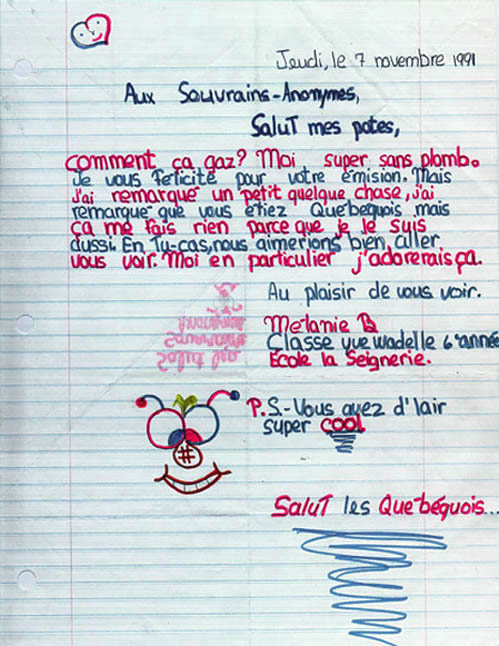 Jeudi, le 7 novembre 1991
Aux Souvrains-Anonymes,
Salut mes potes,
comment ça gaz? Moi super sans plomb.
Je vous felicite pour votre émision. Mais
j'ai remarqué un petit quelque chose, j'ai
remarque que vous étiez Québequois mais
ça me fais rien parce que je le suis
aussi. En Tu-cas, nous aimerions bien aller
vous voir. Moi en particulier j'adorerais ça.
Au plaisir de vous voir.
Mélanie B
Classe yue wadelle 6e année
École la Seignerie.
P.S.-Vous avez d'lair
super cool
Salut les Québéquois...